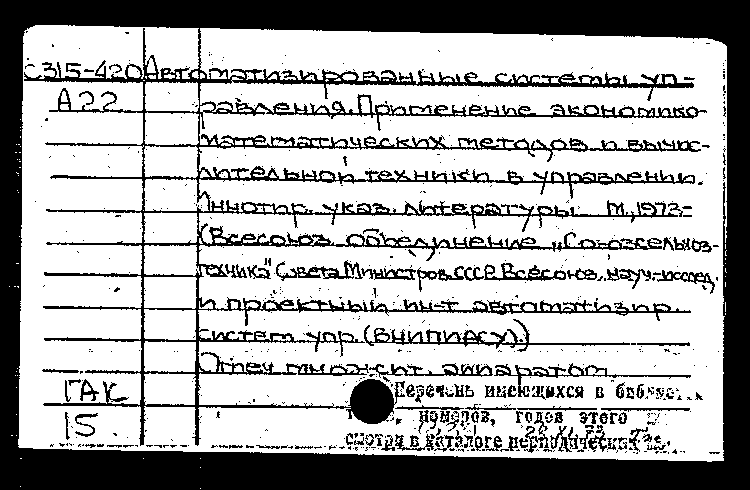 С315-420 Автоматизированные системы уп-
А22 равления. Применение экономико-
математических методов и вычис-
лительной техники в управлении.
Аннотир. указ. литературы. М., 1973-
(Всесоюз. объединение „Союзсельхоз-
техника" Совета Министров СССР. Всесоюз. науч.-исслед.
и проектный ин-т автоматизир.
систем упр. (ВНИПИАСУ).)
Отпеч. множит. аппаратом.
ГАК Перечень имеющихся в библиот
15. номеров, годов этого
смотри в каталоге периодических